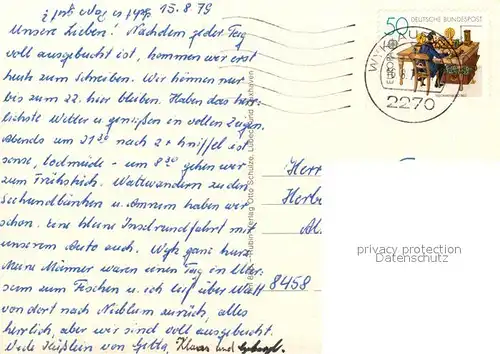 15.8.79
Unsere Lieben! Nachdem jeder Tag
voll ausgebucht ist, kommen wir erst
heute zum Schreiben. Wir können nur
bis zum 22. hier bleiben. Haben das herr-
lichste Wetter u genießen in vollen Zügen.
Abends um 21 30 nach 2 x Kniffel ist
sense, todmüde - um 8 30 gehen wir
zum Frühstück. Wattwandern zu den
Seehundbänken u. Amrum haben wir
schon. Eine kleine Inselrundfahrt mit
unserem Auto auch. Wyk ganz kurz
Meine Männer waren einen Tag in Uter-
sum zum Fischen u. ich lief über Watt
von dort nach Nieblum zurück, alles
herrlich, aber wir sind voll ausgebucht.
Viele Küßlein von Gitta, Klaus und
50 DEUTSCHE BUNDESPOST
EUROPA
2270
Herr
Herb
Al
8458
Verlag Otto Schulze
privacy protection
Datenschutz